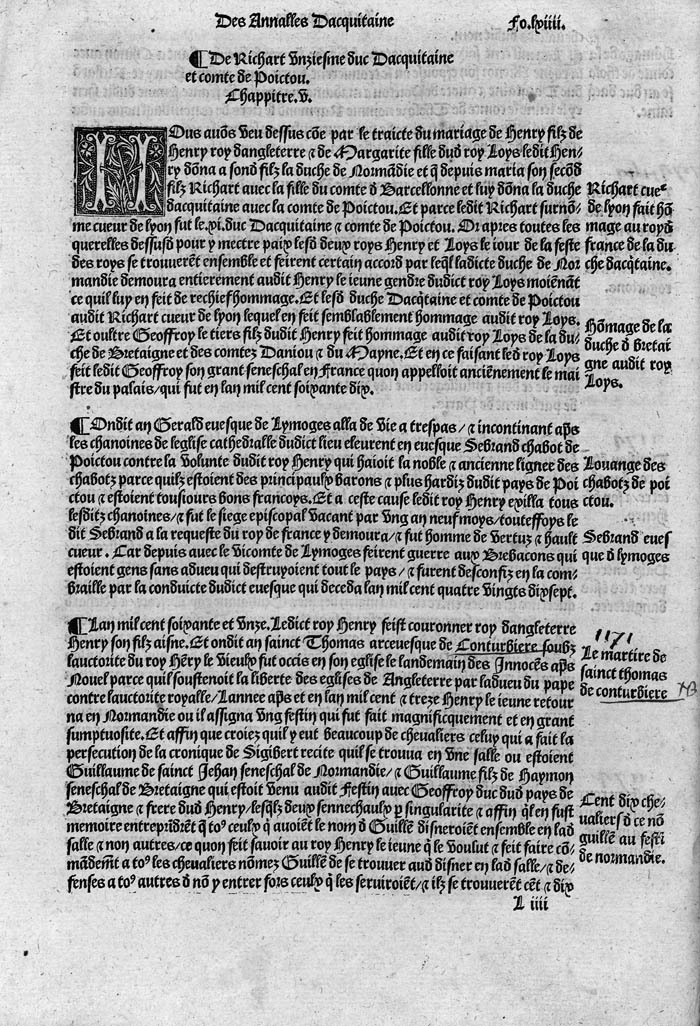 Des Annalles Dacquitaine
Fo.lxiiii.
¶ De Richart vnziesme duc Dacquitaine
et comte de Poictou.
Chappitre.v.
NOus auõs veu dessus cõe par le traicte du mariage de Henry filz de
Henry roy dangleterre ⁊ de Margarite fille dud̃ roy Loys ledit Hen-
ry dõna a sond̃ filz la duche de Normãdie et q̃ depuis maria son secõd
filz Richart auec la fille du comte d̃ Barcellonne et luy dõna la duche
dacquitaine auec la comte de Poictou. Et parce ledit Richart surnõ-
me cueur de lyon fut le.xi.duc Dacquitaine ⁊ comte de Poictou. Or apres toutes les
querelles dessusd̃ pour y mectre paix lesd̃ deux roys Henry et Loys le iour de la feste
des roys se trouuerẽt ensemble et feirent certain accord par leq̃l ladicte duche de Nor
mandie demoura entierement audit Henry le ieune gendre dudict roy Loys moiẽnãt
ce quil luy en feit de rechief hommage. Et lesd̃ duche Dacq̃taine et comte de Poictou
audit Richart cueur de lyon lequel en feit semblablement hommage audit roy Loys.
Et oultre Geoffroy le tiers filz dudit Henry feit hommage audit roy Loys de la du-
che de Bretaigne et des comtez Daniou ⁊ du Mayne. Et en ce faisant led̃ roy Loys
feit ledit Geoffroy son grant seneschal en France quon appelloit anciẽnement le mai
stre du palais/qui fut en lan mil cent soixante dix.
Richart cueᵉ
de lyon fait hõ
mage au royd̃
france de la du
che dacq̃taine.
Hõmage de la
duche d̃ bretai
gne audit roy
Loys.
¶ Ondit an Gerald euesque de Lymoges alla de vie a trespas/⁊ incontinant aps̃
les chanoines de leglise cathedralle dudict lieu eleurent en euesque Sebrand chabot de
Poictou contre la volunte dudit roy Henry qui haioit la noble ⁊ ancienne lignee des
chabotz parce quilz estoient des principaulx barons ⁊ plus hardiz dudit pays de Poi
ctou ⁊ estoient tousiours bons francoys. Et a ceste cause ledit roy Henry exilla tous
lesditz chanoines/⁊ fut le siege episcopal vacant par vng an neuf moys/touteffoys le
dit Sebrand a la requeste du roy de france y demoura/⁊ fut homme de vertuz ⁊ hault
cueur. Car depuis auec le vicomte de Lymoges feirent guerre aux Brebacons qui
estoient gens sans adueu qui destruyoient tout le pays/⁊ furent desconfiz en la com-
braille par la conduicte dudict euesque qui deceda lan mil cent quatre vingts dixsept.
Louange des
chabotz de poi
ctou.
Sebrand eues
que d̃ lymoges
¶ Lan mil cent soixante et vnze. Ledict roy Henry feist couronner roy dangleterre
Henry son filz aisne. Et ondit an sainct Thomas arceuesque de Conturbiere soubz
lauctorite du roy Hẽry le vieulx fut occis en son eglise le landemain des Innocẽs aps̃
Nouel parce quil soustenoit la liberte des eglises de Angleterre par ladueu du pape
contre lauctorite royalle/Lannee aps̃ et en lan mil cent ⁊ treze Henry le ieune retour
na en Normandie ou il assigna vng festin qui fut fait magnificquement et en grant
sumptuosite. Et affin que croiez quil y eut beaucoup de cheualiers celuy qui a fait la
persecution de la cronique de Sigibert recite quil se trouua en vne salle ou estoient
Guillaume de sainct Jehan seneschal de Normandie/⁊ Guillaume filz de Haymon
seneschal de Bretaigne qui estoit venu audit Festin auec Geoffroy duc dud̃ pays de
Bretaigne ⁊ frere dud̃ Henry/lesq̃lz deux sennechaulx p̃ singularite ⁊ affin q̃ l en fust
memoire entrepr̃idrẽt q̃ toᵒ ceulx q̃ auoiẽt le nom d̃ Guillẽ disneroiẽt ensemble en lad̃
salle ⁊ non autres/ce quon feit sauoir au roy Henry le ieune q̃ le voulut ⁊ feit faire cõ-
mãdemẽt a toᵒ les cheualiers nõmez Guillẽ de se trouuer aud̃ disner en lad̃ salle/⁊ de-
fenses a toᵒ autres d̃ nõ y entrer fors ceulx q̃ les seruiroiẽt/⁊ ilz se trouuerẽt cẽt ⁊ dix
1171
Le martire de
sainct thomas
de conturbiere
NB
Cent dix che-
ualiers d̃ ce nõ
guillẽ au festĩ
de normandie.
L iiii